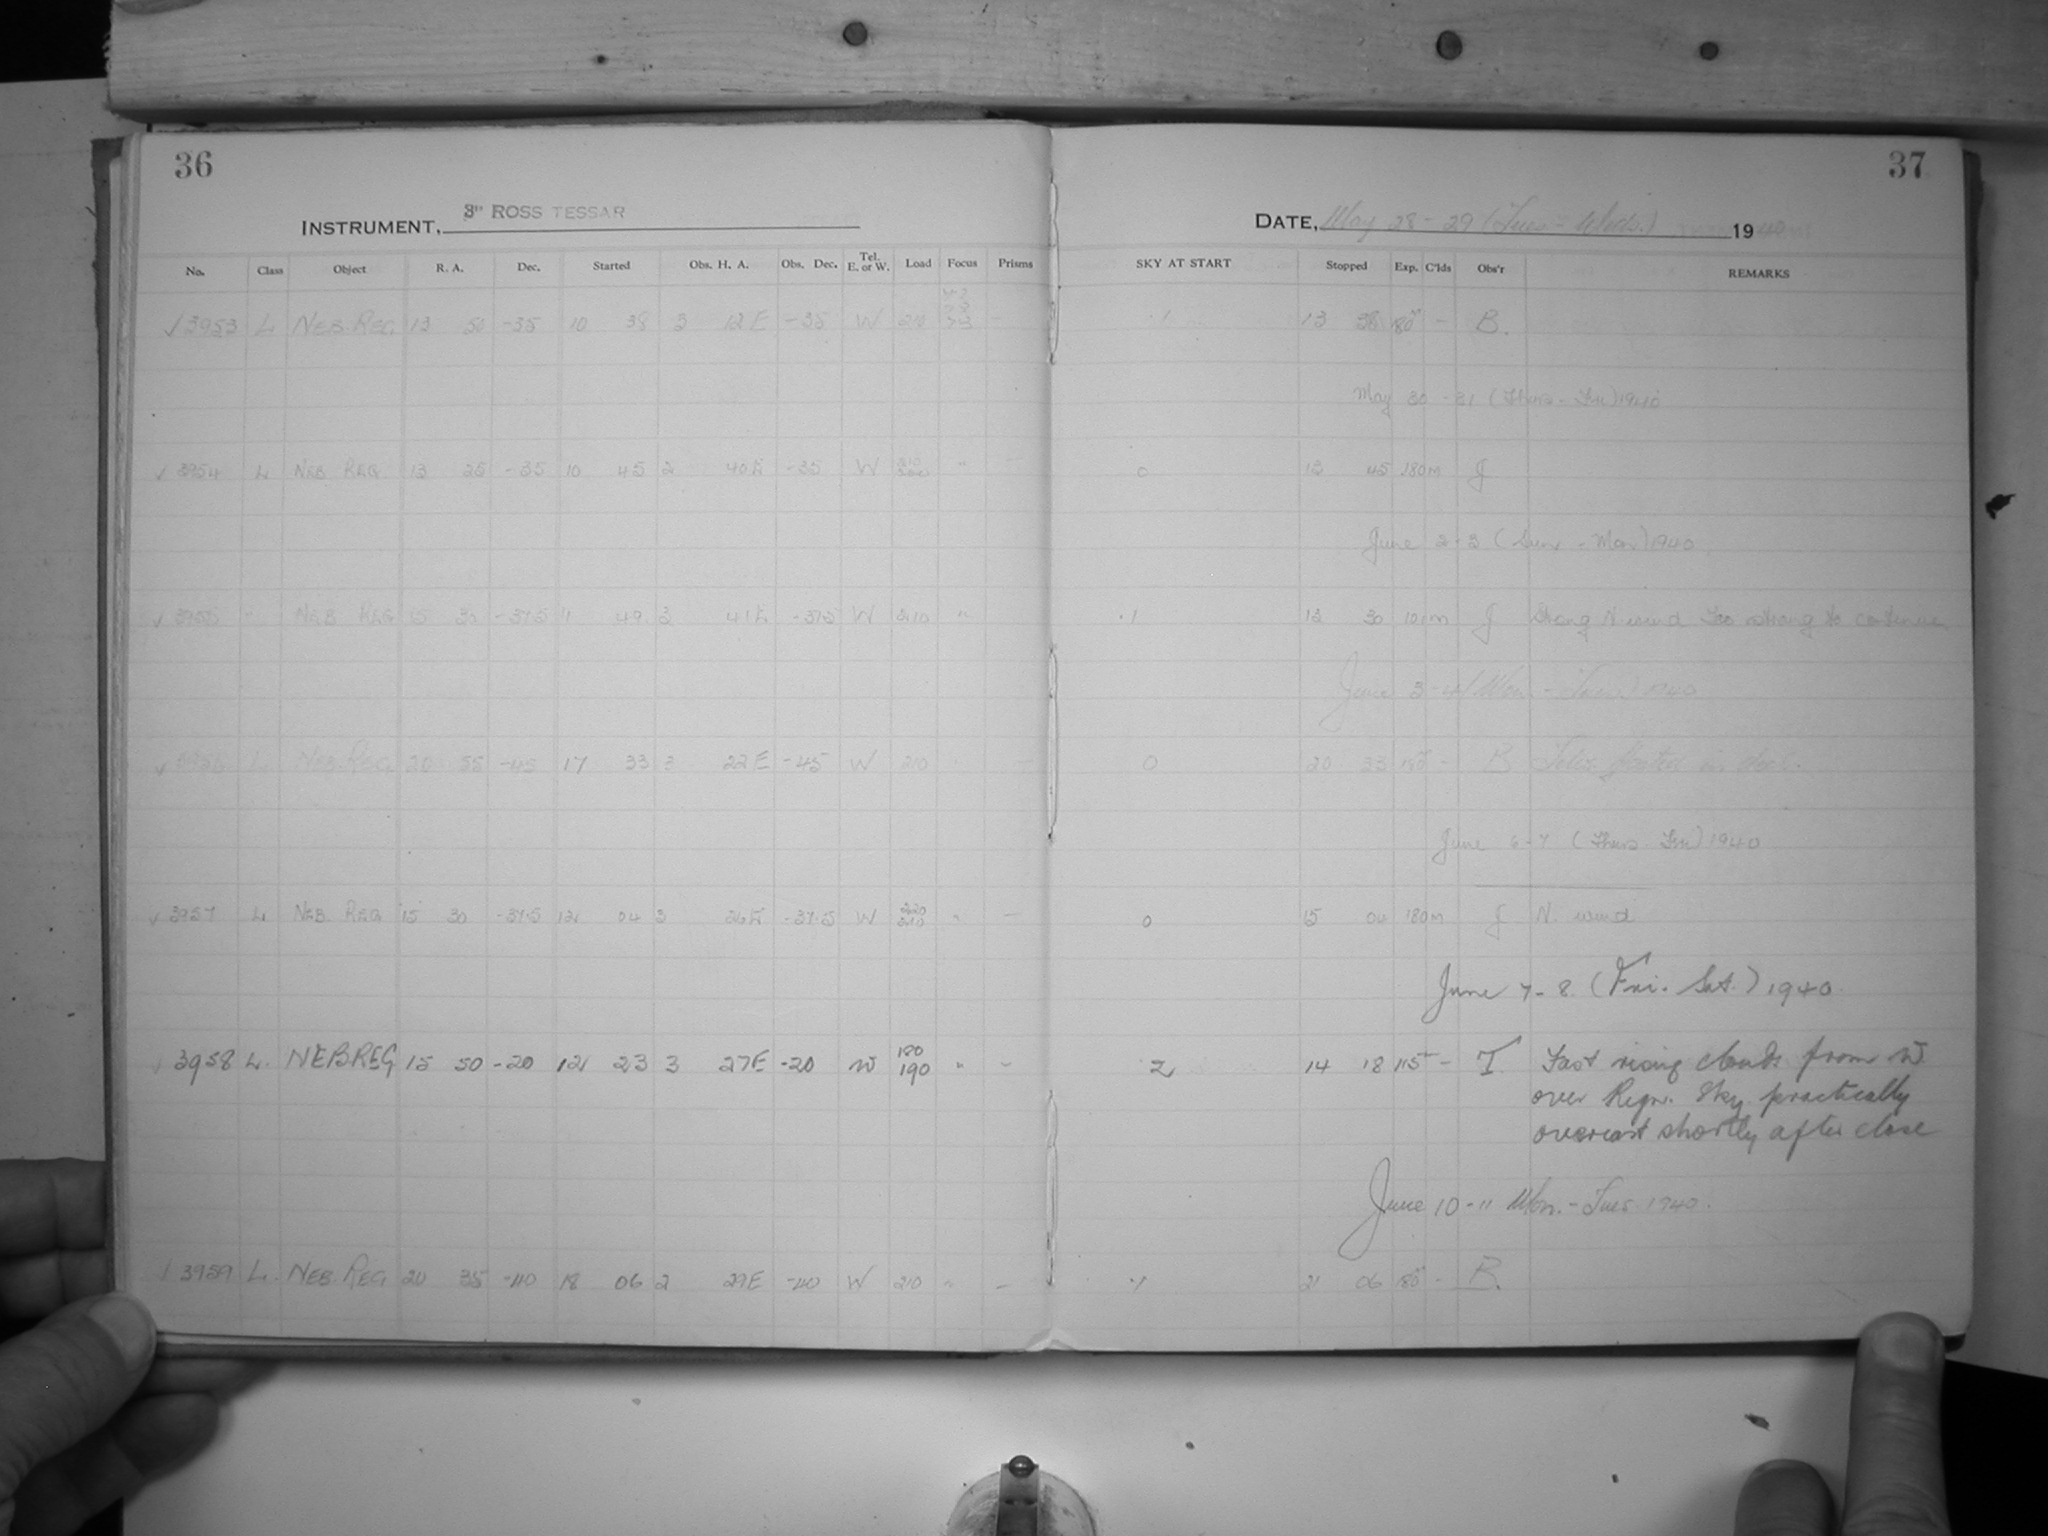 36
37
INSTRUMENT, 3" ROSS TESSAR
DATE, May 28 - 29 (Tues - Weds.) 1940
No. Class Object R. A. Dec. Started Obs. H. A. Obs. Dec. Tel. E. or W. Load Focus Prisms SKY AT START Stopped Exp. C'lds Obs'r REMARKS
✓ 3953 L NEB. REG. 13 50 -35 10 38 3 12 E -35 W 210 - .1 13 38 180m - B.
May 30 - 31 (Thurs - Fri) 1940
✓ 3954 L NEB REG 13 25 -35 10 45 2 40 E -35 W " - 0 13 45 180m J
June 2 - 3 (Sun - Mon) 1940
✓ 3955 - NEB REG 15 30 -37.5 11 49 3 41 E -37.5 W 210 " .1 13 30 101m J Strong N wind Too strong to continue
June 3 - 4 (Mon. - Tues.) 1940
✓ 3956 L NEB. REG. 20 55 -45 17 33 3 22 E -45 W 210 0 20 33 180m - B
June 6 - 7 (Thurs Fri) 1940
✓ 3957 L NEB REG 15 30 -37.5 12 04 3 26 E -37.5 W 220 210 " - 0 15 04 180m J N. wind
June 7 - 8. (Fri. Sat.) 1940.
✓ 3958 L. NEB REG 15 50 -20 12 23 3 27 E -20 W 180 190 " - 2 14 18 115m - T Fast rising clouds from W
over Regn. Sky practically
overcast shortly after close
June 10 - 11 Mon. - Tues. 1940.
✓ 3959 L. NEB. REG 20 35 -40 18 06 2 29 E -40 W 210 " - .1 21 06 180m - B.